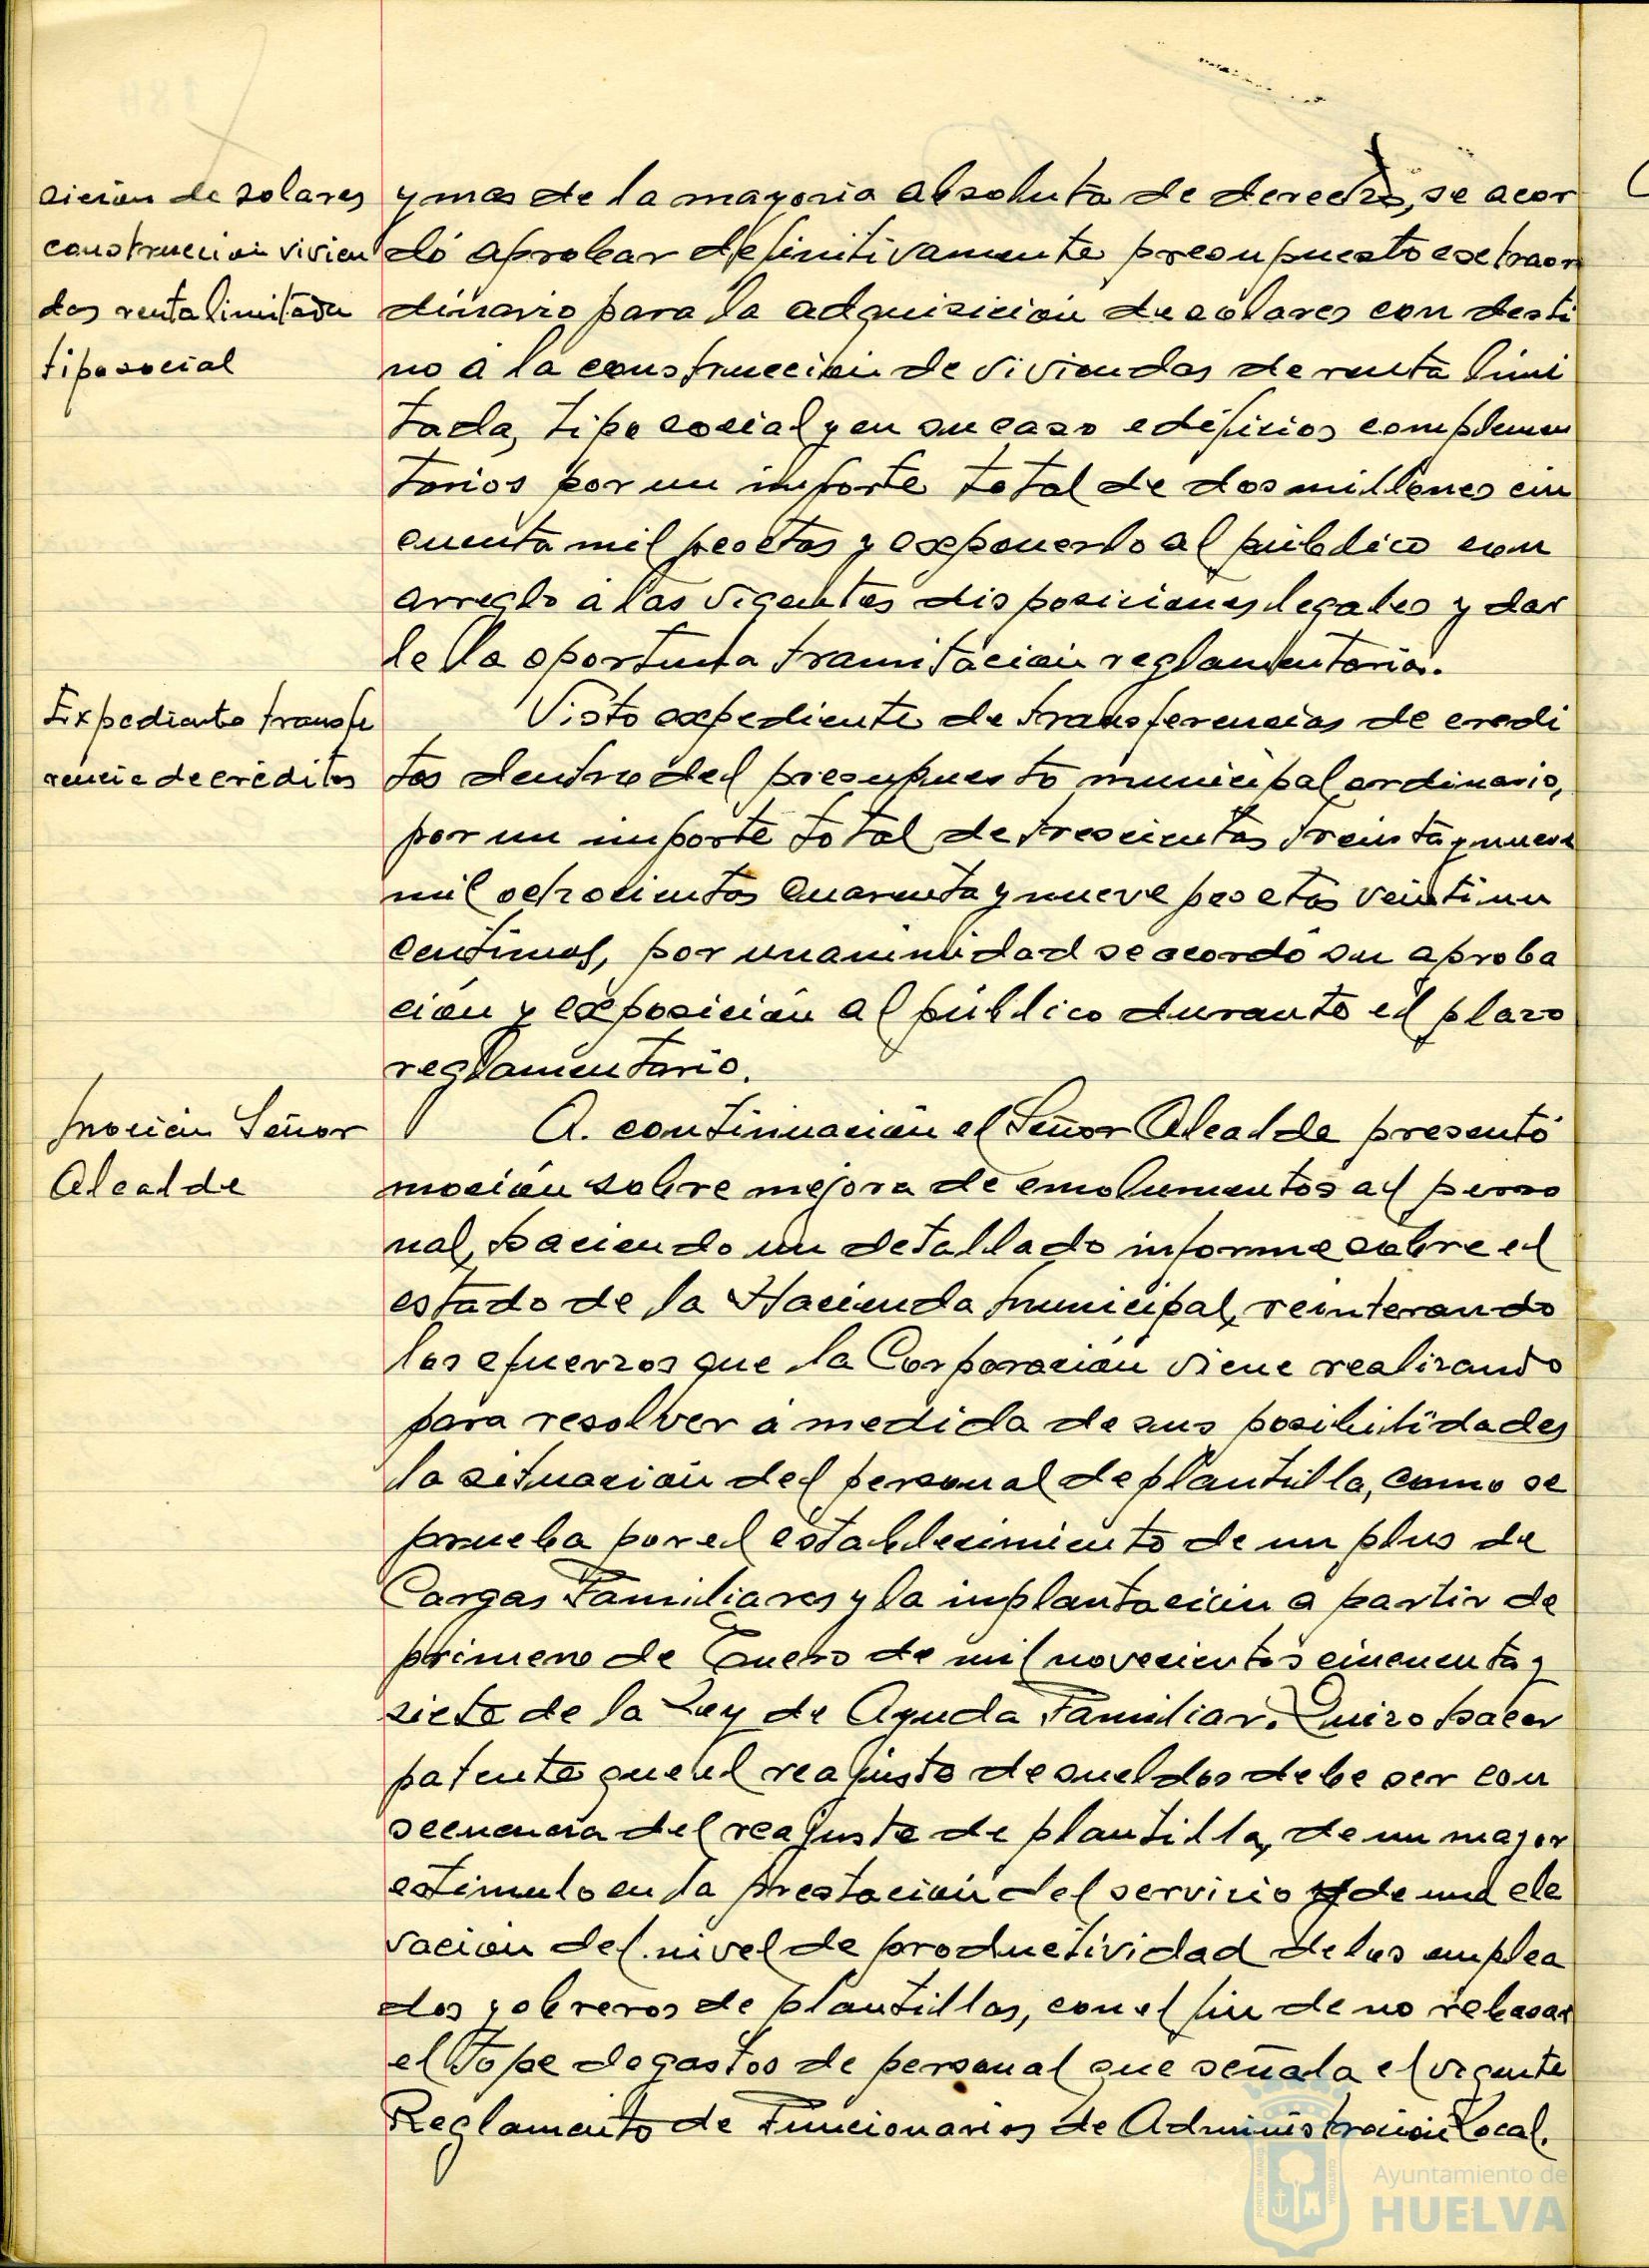 sición de solares
construccion vivien
das renta limitada
tipo social
y mas de la mayoria absoluta de derecho, se acor
dó aprobar definitivamente presupuesto extraor
dinario para la adquisición de solares con desti
no a la construcción de viviendas de renta limi
tada, tipo social y en su caso edificios complemen
tarios por un importe total de dos millones cin
cuenta mil pesetas y exponerlo al público con
arreglo a las vigentes disposiciones legales y dar
le la oportuna tramitación reglamentaria.
Expediente transfe
rencia de créditos
Visto expediente de transferencias de credi
tos dentro del presupuesto municipal ordinario,
por un importe total de trescientas treinta y nueve
mil ochocientas cuarenta y nueve pesetas veintiun
centimos, por unanimidad se acordó su aproba
ción y exposición al público durante el plazo
reglamentario.
Moción Señor
Alcalde
A. continuación el Señor Alcalde presentó
moción sobre mejora de emolumentos al perso
nal, haciendo un detallado informe sobre el
estado de la Hacienda Municipal, reinterando
los efuerzos que la Corporación viene realizando
para resolver a medida de sus posibilidades
la situación del personal de plantilla, como se
prueba por el establecimiento de un plus de
Cargas Familiares y la implantación a partir de
primero de Enero de mil novecientos cincuenta y
siete de la Ley de Ayuda Familiar. Quizo hacer
patente que el reajuste de sueldos debe ser con
secuencia del reajuste de plantilla, de un mayor
estimulo en la prestación del servicio y de una ele
vacion del nivel de productividad de los emplea
dos y obreros de plantillas, con el fin de no rebasar
el tope de gastos de personal que señala el vigente
Reglamento de Funcionarios de Administración Local.
Ayuntamiento de
HUELVA